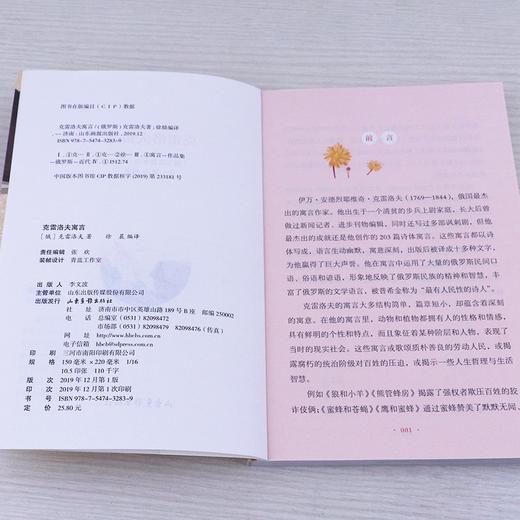 图书在版编目(CIP)数据
克雷洛夫寓言/(俄罗斯)克雷洛夫著;徐晨编译
.—济南:山东画报出版社,2019.12
ISBN 978-7-5474-3283-9
Ⅰ.①克… Ⅱ.①克…②徐… Ⅲ.①寓言-作品集
-俄罗斯-近代 Ⅳ.①I512.74
中国版本图书馆CIP数据核字(2019)第233181号
克雷洛夫寓言
[俄]克雷洛夫 著 徐晨 编译
责任编辑 张欢
装帧设计 青蓝工作室
出版人 李文波
主管单位 山东出版传媒股份有限公司
出版发行 山东画报出版社
社址 济南市市中区英雄山路189号B座 邮编 250002
电话 总编室(0531)82098472
市场部(0531)82098479 82098476(传真)
网址 http://www.hbcbs.com.cn
电子信箱 hbcb@sdpress.com.cn
印刷 三河市南阳印刷有限公司
规格 150毫米×220毫米 1/16
10.5印张 110千字
版次 2019年12月第1版
印次 2019年12月第1次印刷
书号 ISBN 978-7-5474-3283-9
定价 25.80元
前言
伊万·安德烈耶维奇·克雷洛夫(1769—1844),俄国最杰
出的寓言作家。他出生于一个清贫的步兵上尉家庭,长大后曾
做过新闻记者、进步刊物编辑,同时还写过多部讽刺剧,但他
最杰出的成就还是他创作的203篇诗体寓言。这些寓言都以诗
体写成,语言生动幽默,寓意深刻,出版后被译成十多种文字,
为他赢得了巨大声誉。他在寓言中运用了大量的俄罗斯民间口
语、俗语和谚语,形象地反映了俄罗斯民族的精神和智慧,丰
富了俄罗斯的文学语言,被普希金称为“最有人民性的诗人”。
克雷洛夫的寓言大多结构简单,篇章短小,却蕴含着深刻
的寓意。在他的寓言里,动物和植物都拥有人的性格和情感,
具有鲜明的个性和特点,而且象征着某种阶层和人物,表现了
当时的现实社会。这些寓言或歌颂质朴善良的劳动人民,或揭
露腐朽的统治阶级对百姓的压迫,或揭示一些人生哲理与生活
智慧。
例如《狼和小羊》《熊管蜂房》揭露了强权者欺压百姓的狡
诈伎俩;《蜜蜂和苍蝇》《鹰和蜜蜂》通过蜜蜂赞美了默默无闻、
· 001 ·